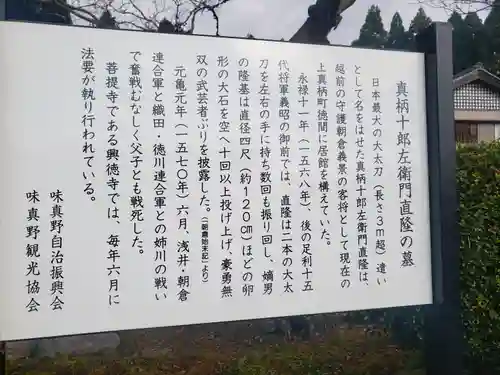 真柄十郎左衛門直隆の墓
日本最大の大太刀（長さ3m超）遣い
として名をはせた真柄十郎左衛門直隆は、
越前の守護朝倉義景の客将として現在の
上真柄町徳間に居館を構えていた。
永禄十一年（一五六八年）、後の足利十五
代将軍義昭の御前では、直隆は二本の大太
刀を左右の手に持ち数回も振り回し、嫡男
の隆基は直径四尺（約120㎝）ほどの卵
形の大石を空へ十回以上投げ上げ、豪勇無
双の武芸者ぶりを披露した。（「朝倉始末記」より）
元亀元年（一五七〇年）六月、浅井・朝倉
連合軍と織田・徳川連合軍との姉川の戦い
で奮戦むなしく父子とも戦死した。
菩提寺である興徳寺では、毎年六月に
法要が執り行われている。
味真野自治振興会
味真野観光協会